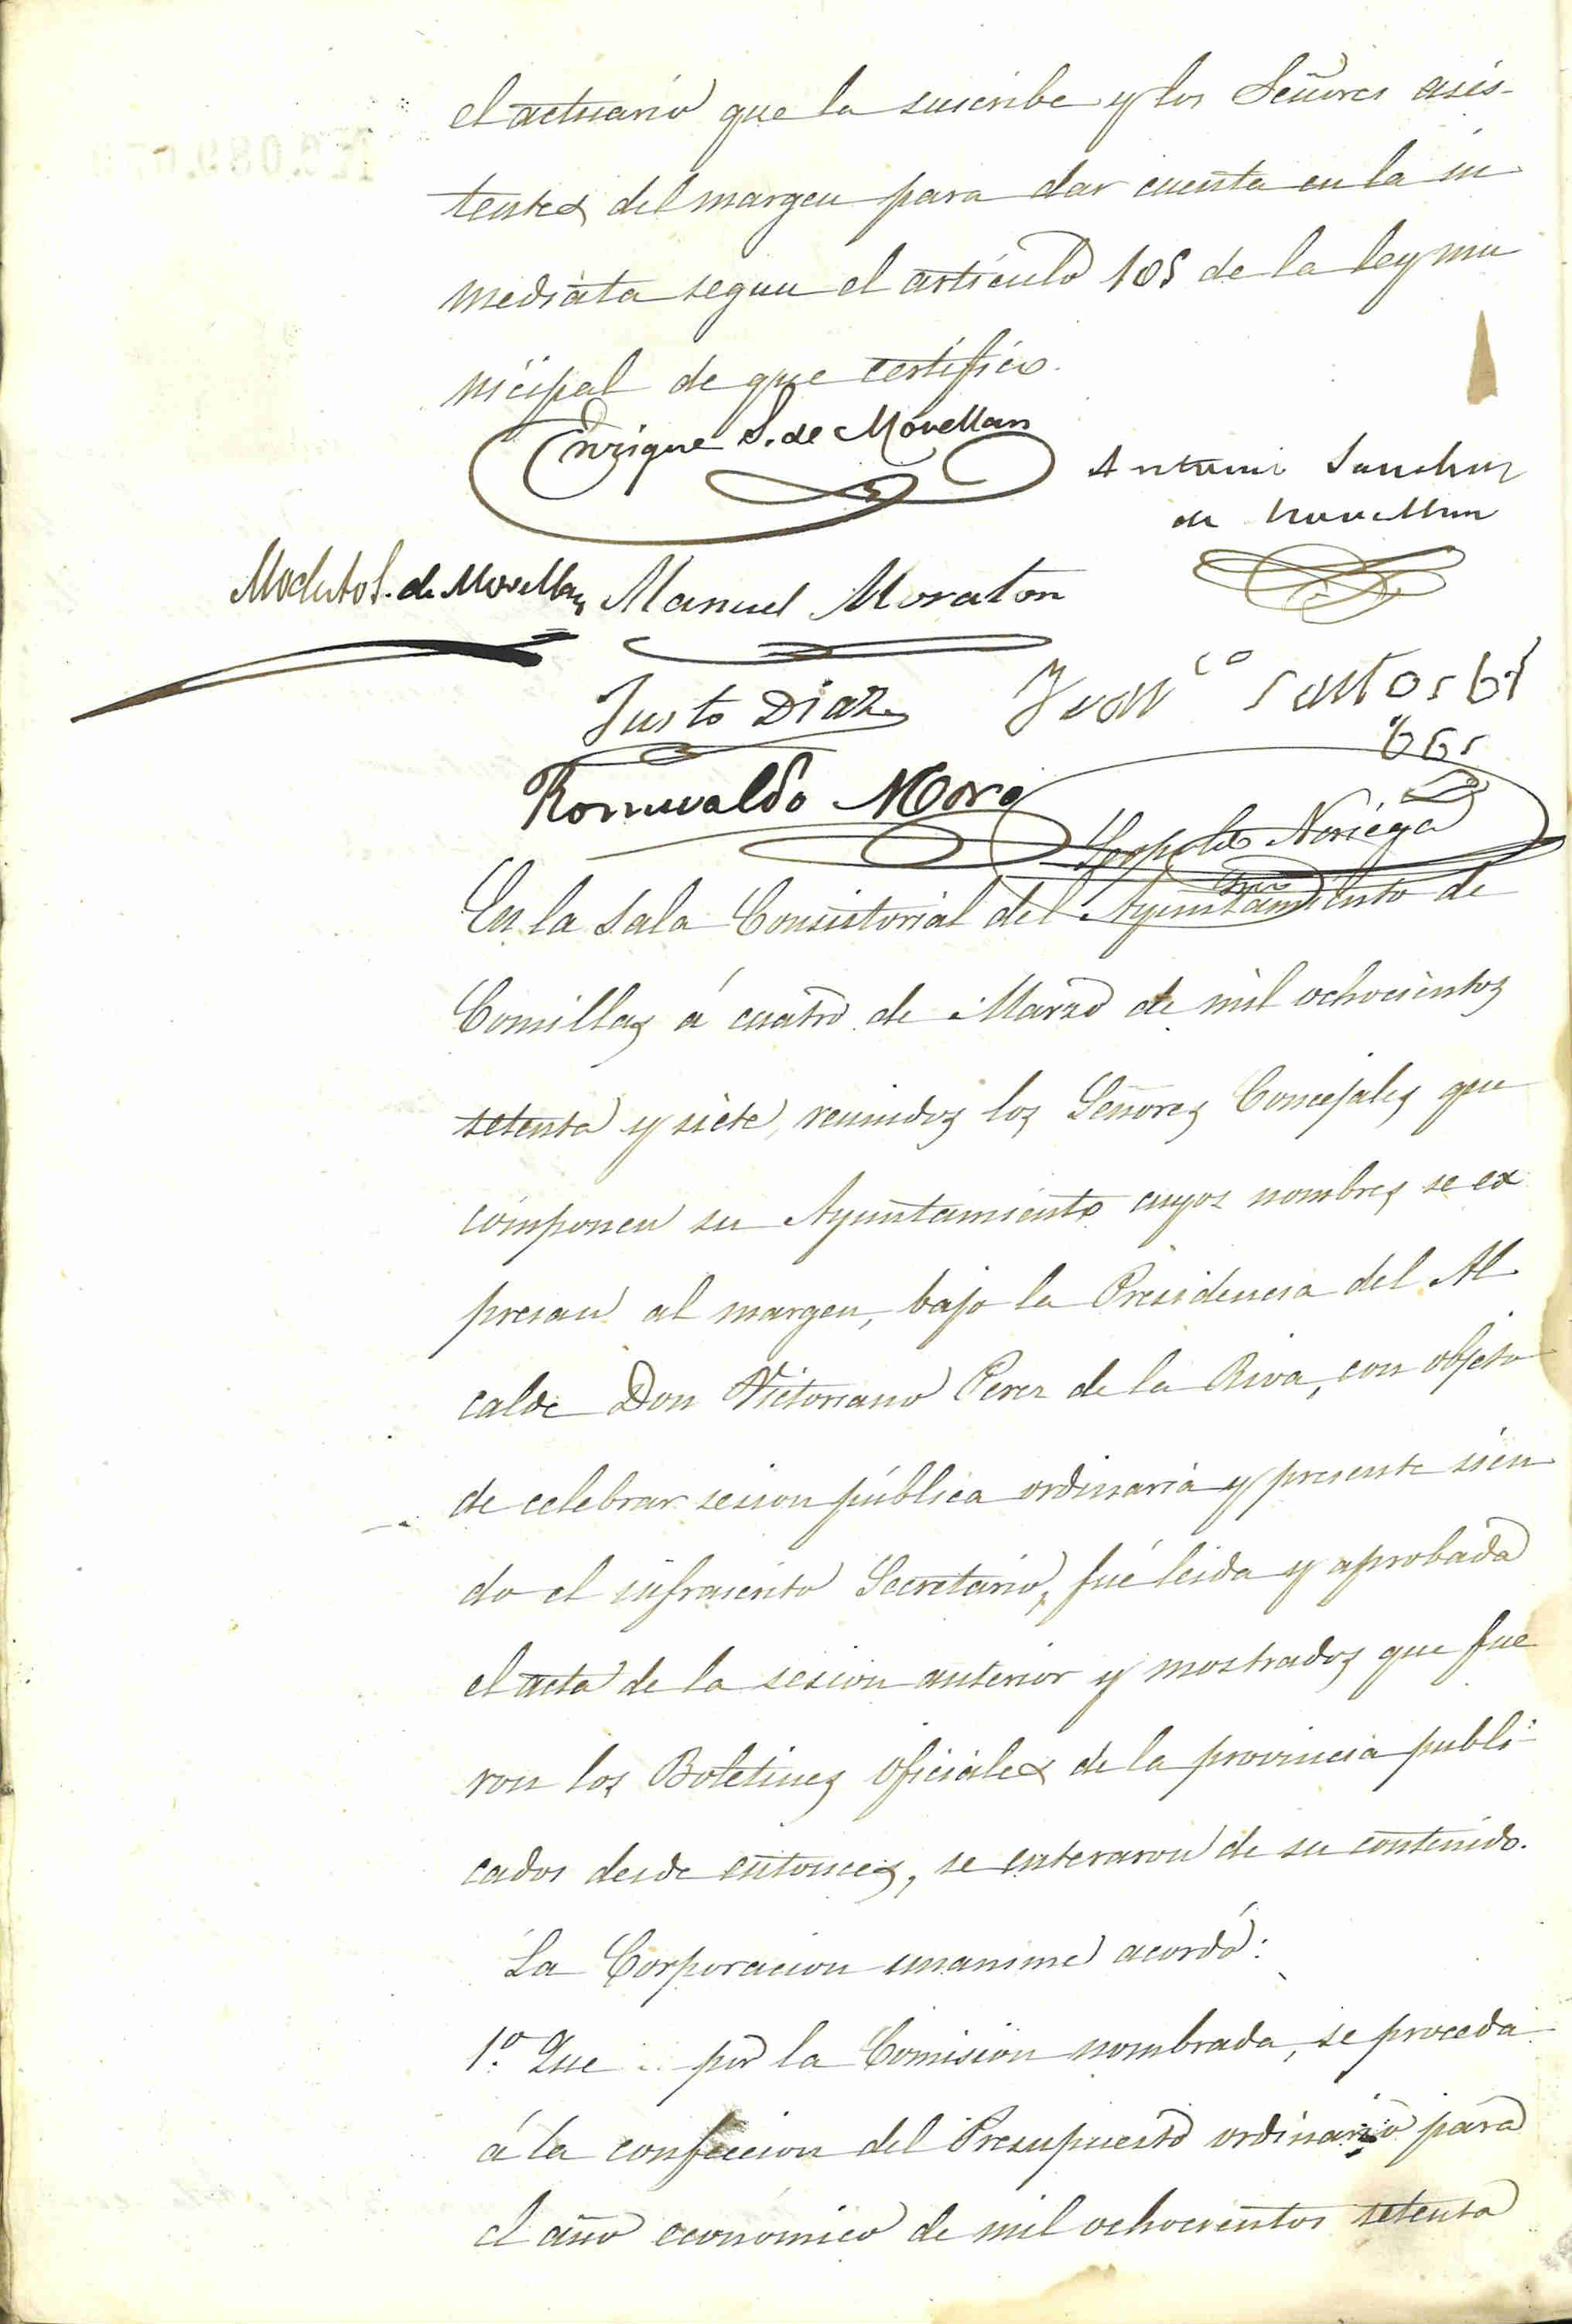 el actuario que la suscribe y los Señores asis-
tentes del margen para dar cuenta en la in
mediata segun el artículo 105 de la ley mu
nicipal de que certifico.
Enrique S. de Movellan
Antonio Sanchez
de Movellan
Modesto S. de Movellan Manuel Moraton
Justo Diaz Franco Santos
Romualdo Moro
Leopoldo Noriega
Srio
En la Sala Consistorial del Ayuntamiento de
Comillas á cuatro de Marzo de mil ochocientos
setenta y siete, reunidos los Señores Concejales que
componen su Ayuntamiento cuyos nombres se ex
presan al margen, bajo la Presidencia del Al
calde Don Victoriano Perez de la Riva, con objeto
de celebrar sesion pública ordinaria y presente sien
do el infrascrito Secretario, fué leida y aprobada
el acta de la sesion anterior y mostrados que fue
ron los Boletines oficiales de la provincia publi-
cados desde entonces, se enteraron de su contenido.
La Corporacion unanime acordó:
1º. Que por la Comision nombrada, se proceda
á la confeccion del Presupuesto ordinario para
el año económico de mil ochocientos setenta